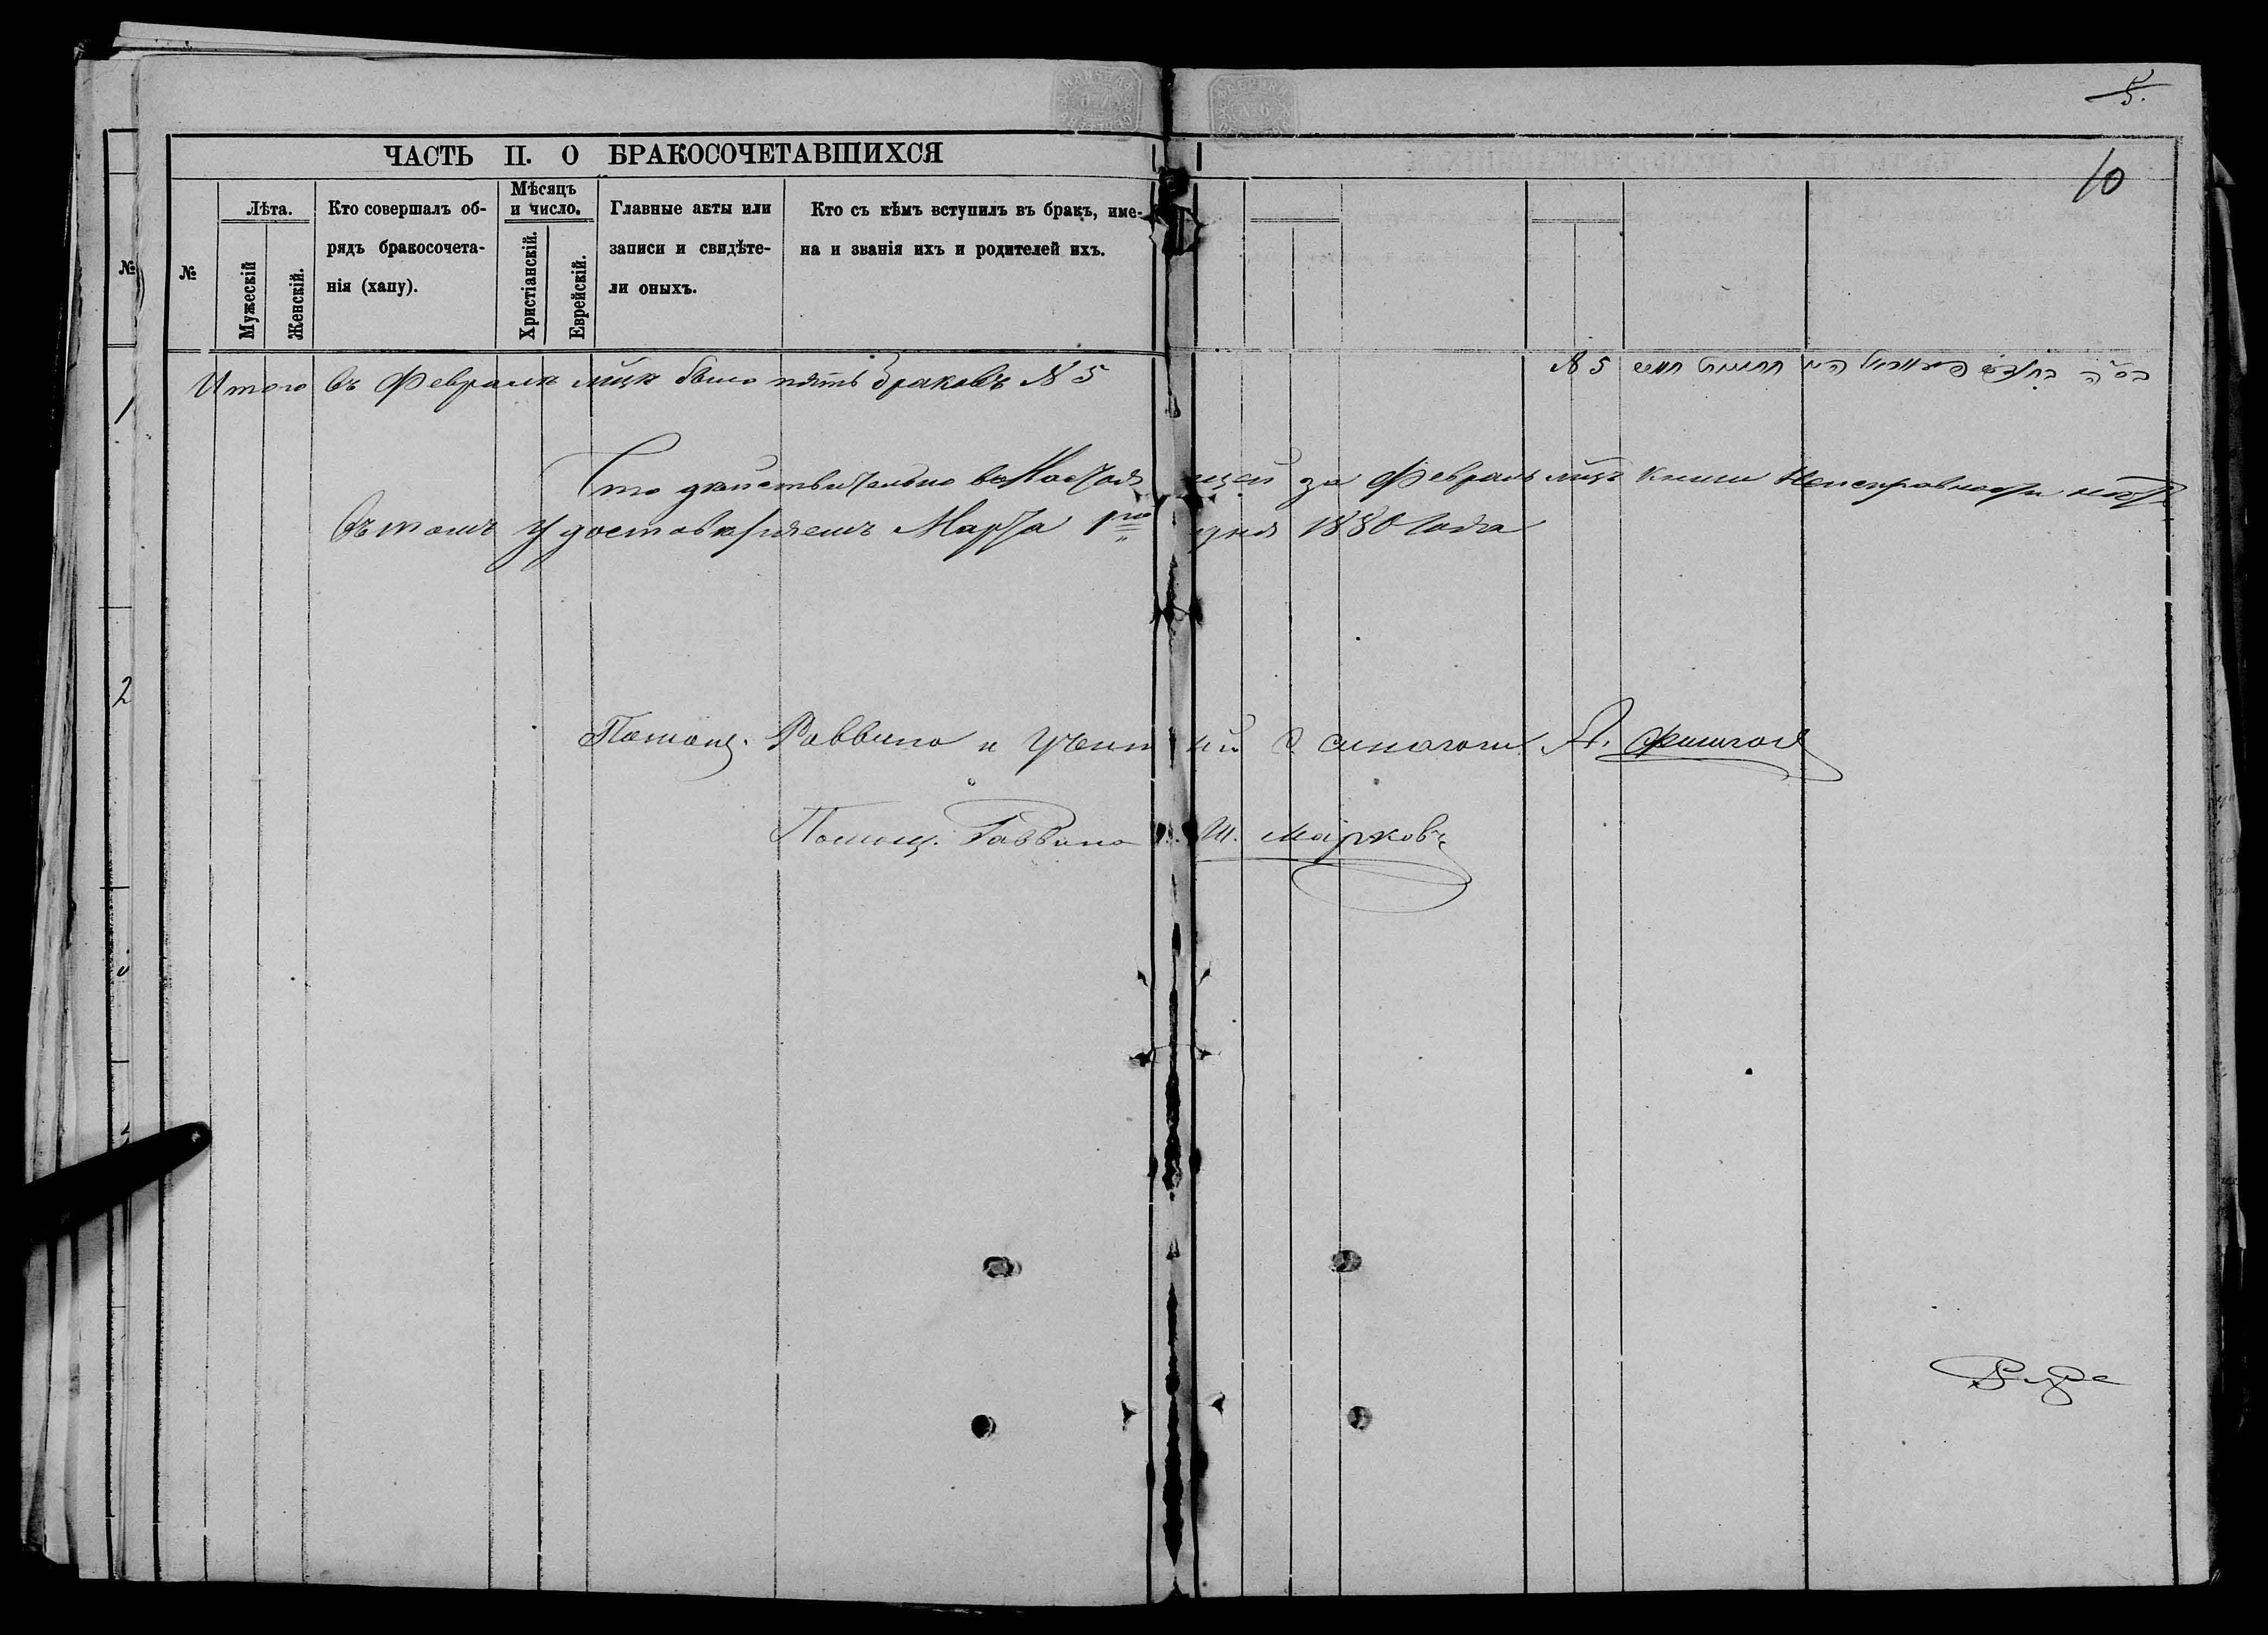 5.
10
ЧАСТЬ II. О БРАКОСОЧЕТАВШИХСЯ
№
№
Лѣта.
Мужескій
Женскій.
Кто совершалъ об-
рядъ бракосочета-
нія (хапу).
Мѣсяцъ
и число.
Христіанскій.
Еврейскій.
Главные акты или
записи и свидѣте-
ли оныхъ.
Кто съ кѣмъ вступилъ въ бракъ, име-
на и званія ихъ и родителей ихъ.
Итого въ Февралѣ мцѣ было пять браковъ № 5
№ 5
1
Что дѣйствительно въ Настоящей за Февраль мцъ книги Неисправности нѣтъ
Въ томъ удостовѣряемъ Марта 1го дня 1880 Года
2
Помощ. Раввина и Ученный синагоги А.
Помощ. Раввина Ш. Марковъ